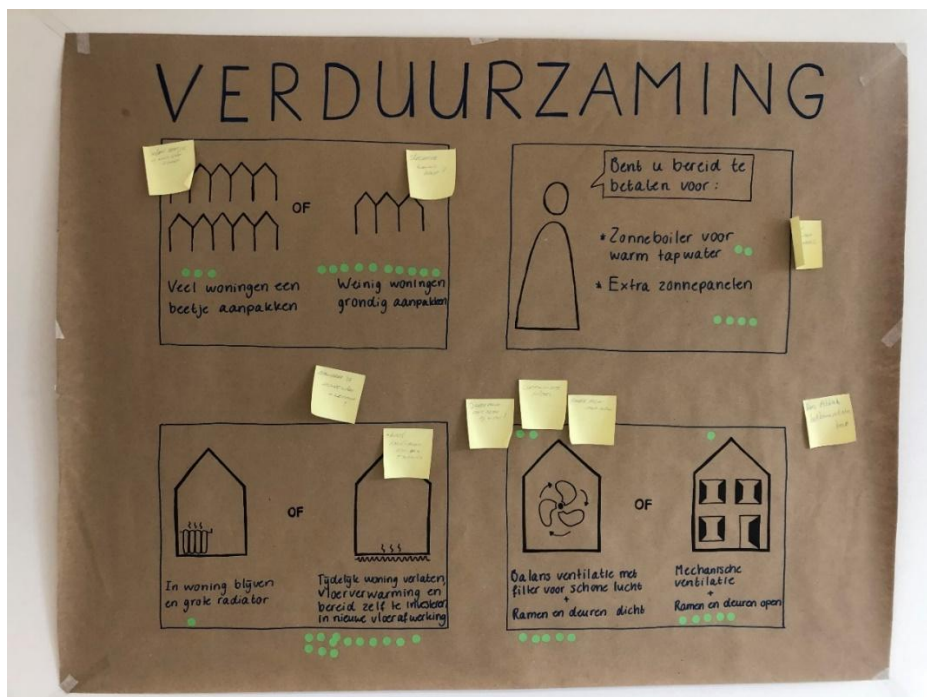 VERDUURZAMING
OF
Veel woningen een
beetje aanpakken
Weinig woningen
grondig aanpakken
Bent u bereid te
betalen voor:
* Zonneboiler voor
warm tapwater
* Extra zonnepanelen
OF
In woning blijven
en grote radiator
Tijdelijk woning verlaten,
vloerverwarming en
bereid zelf te investeren
in nieuwe vloerafwerking
OF
Balans ventilatie met
filter voor schone lucht
+
Ramen en deuren dicht
Mechanische
ventilatie
+
Ramen en deuren open